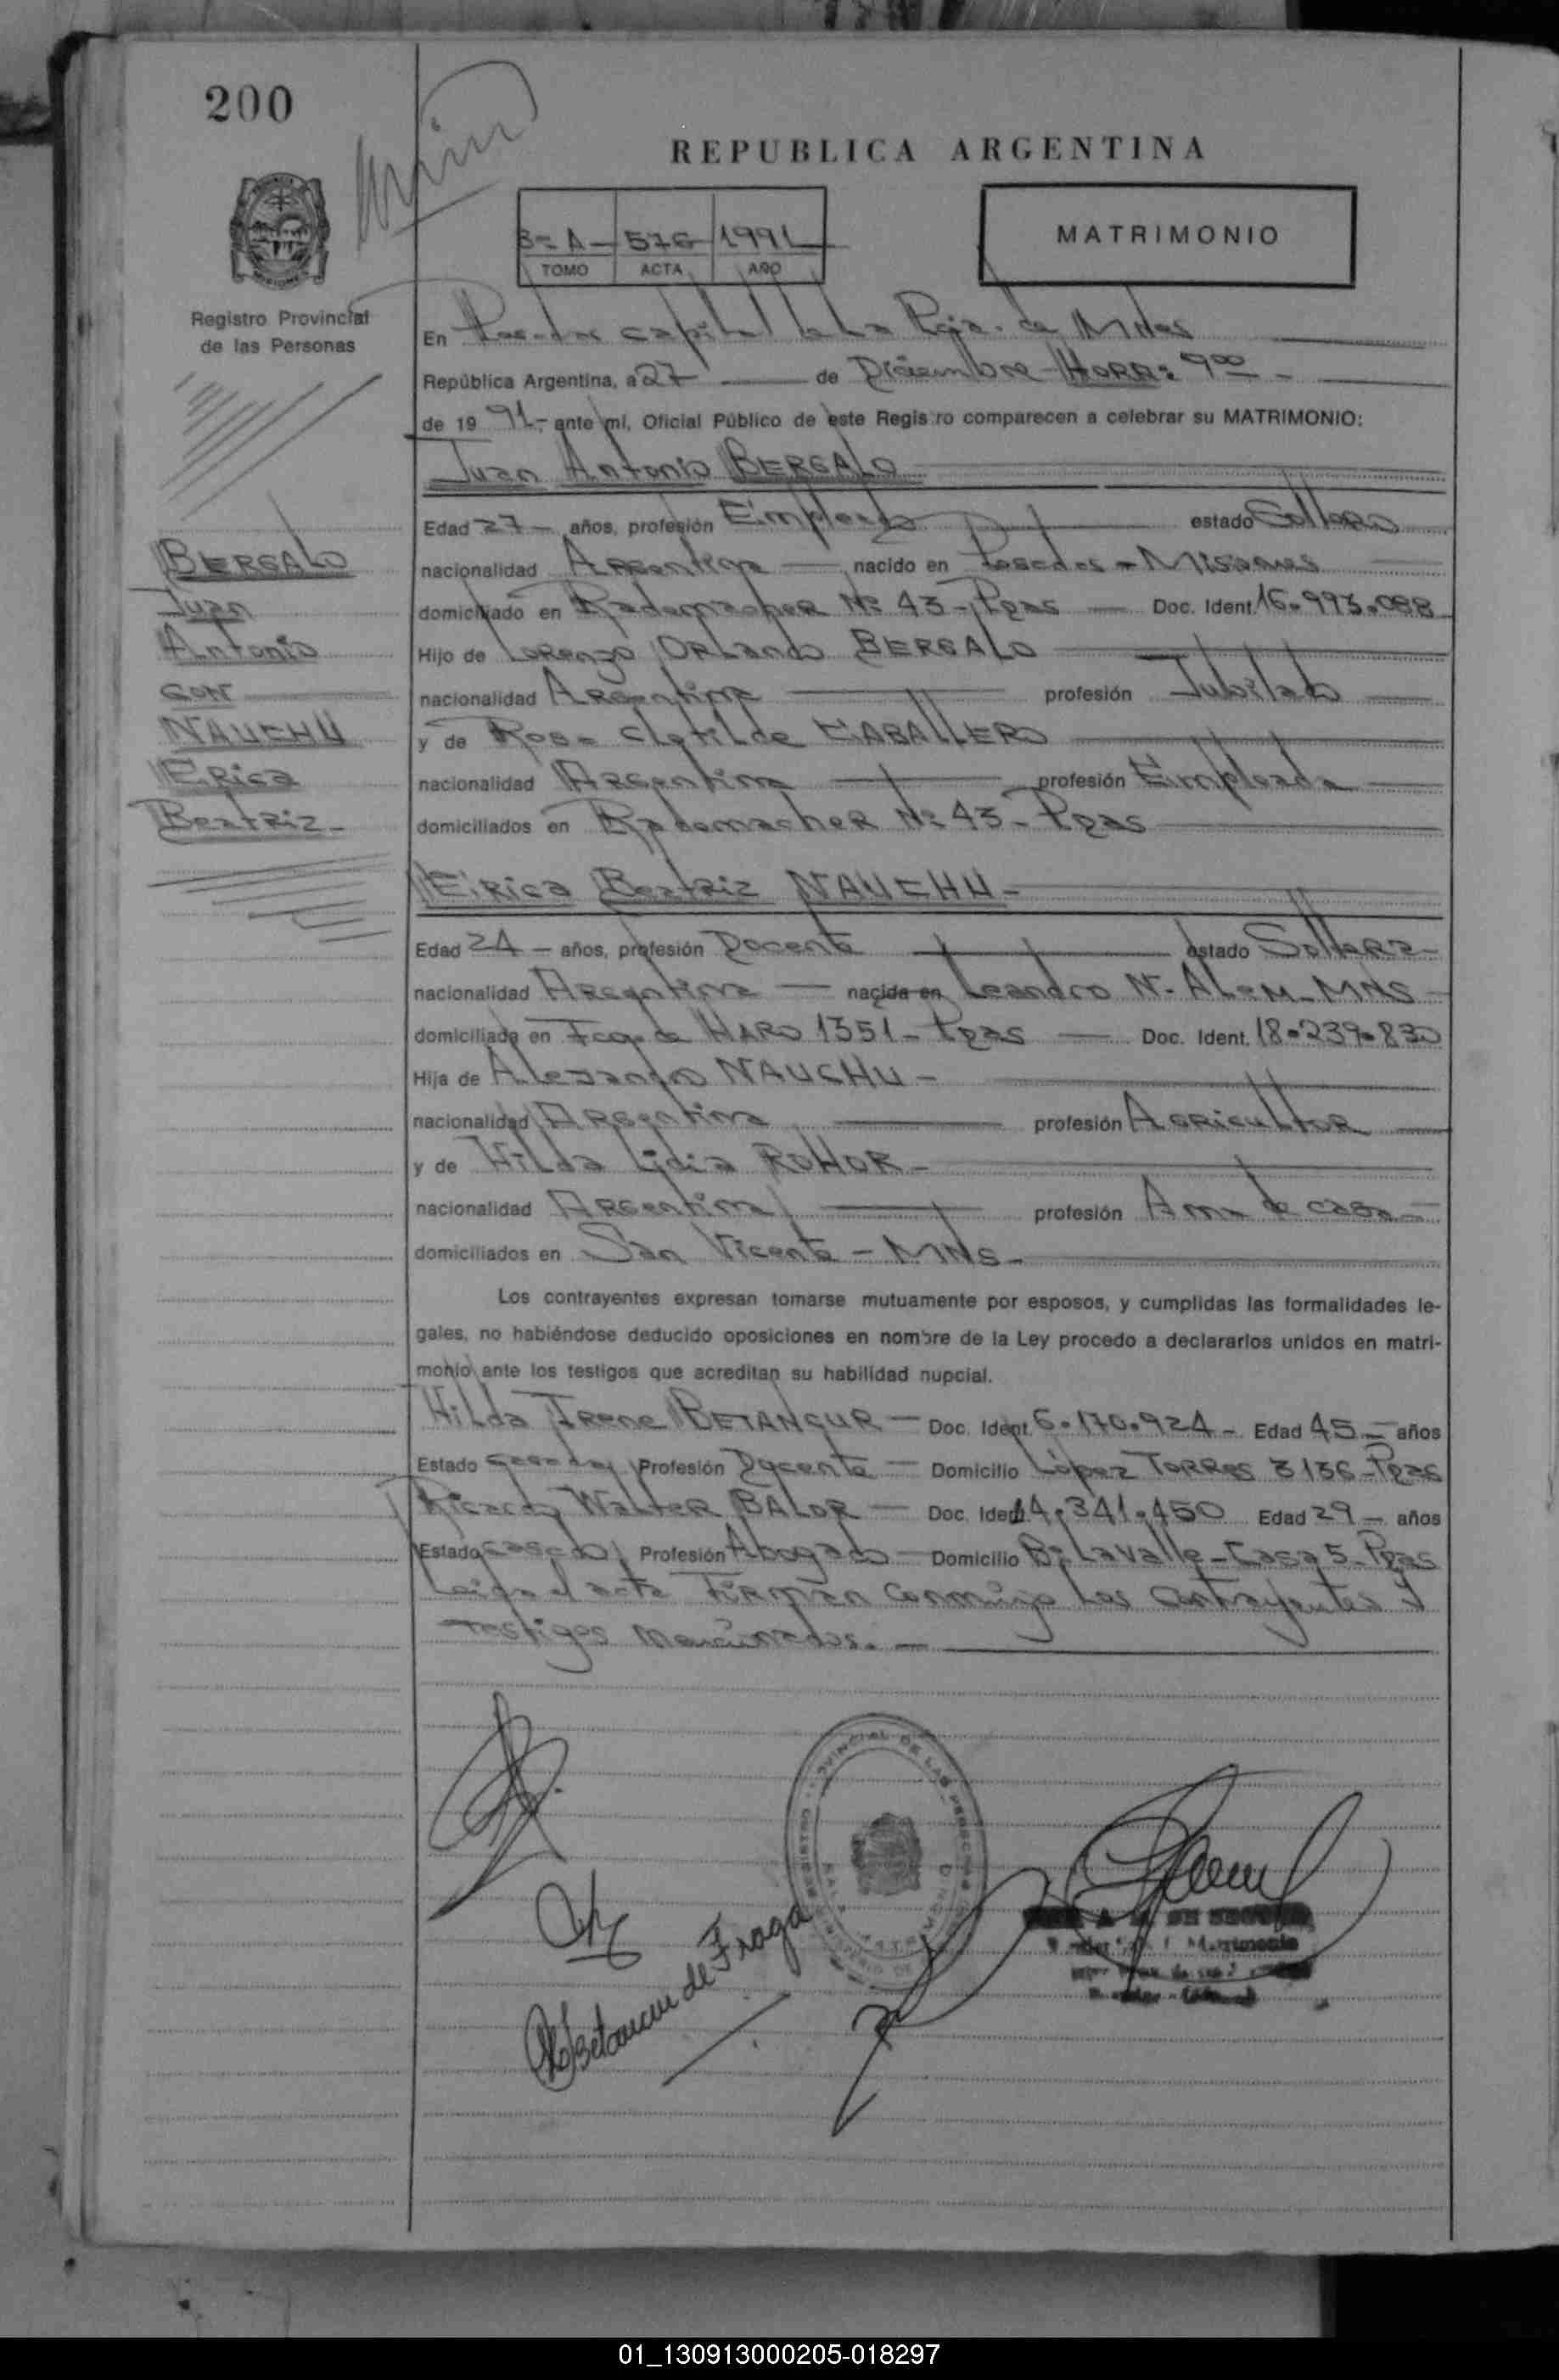 200
REPUBLICA ARGENTINA
3= A - 576 1991
TOMO ACTA AÑO
MATRIMONIO
Registro Provincial
de las Personas
En Posadas capital de La Pcia. de Mnes
República Argentina, a 27 de Diciembre - HORA: 9 00 -
de 19 91.- ante mí, Oficial Público de este Registro comparecen a celebrar su MATRIMONIO:
Juan Antonio BERGALO
Edad 27 - años, profesión Empleado estado Soltero
nacionalidad Argentina nacido en Posadas - Misiones
domiciliado en Rademacher Nº 43 - Pdas Doc. Ident. 16.993.088
Hijo de Lorenzo Orlando BERGALO
nacionalidad Argentina profesión Jubilado
y de Rosa Clotilde CABALLERO
nacionalidad Argentina profesión Empleada
domiciliados en Rademacher Nº 43 - Pdas
BERGALO
Juan
Antonio
CON
NAUCHU
Erica
Beatriz -
Erica Beatriz NAUCHU -
Edad 24 - años, profesión Docente estado Soltera -
nacionalidad Argentina nacida en Leandro N. Alem - MNS
domiciliada en Fray de HARO 1351 - Pdas Doc. Ident. 18.239.830
Hija de Alejandro NAUCHU -
nacionalidad Argentina profesión Agricultor
y de Hilda Lidia ROHOR -
nacionalidad Argentina profesión Ama de casa
domiciliados en San Vicente - MNS -
Los contrayentes expresan tomarse mutuamente por esposos, y cumplidas las formalidades le-
gales, no habiéndose deducido oposiciones en nombre de la Ley procedo a declararlos unidos en matri-
monio ante los testigos que acreditan su habilidad nupcial.
Hilda Irene BETANCUR - Doc. Ident. 6.170.924 - Edad 45 - años
Estado casada Profesión Docente - Domicilio López Torres 3136 - Pdas
Ricardo Walter BALOR - Doc. Ident. 14.341.450 Edad 29 - años
Estado casado Profesión Abogado - Domicilio Bº Lavalle - Casa 5 - Pdas
Leida el acta Firman conmigo los contrayentes y
testigos mencionados. -
Betancur de Fraga
01_130913000205-018297